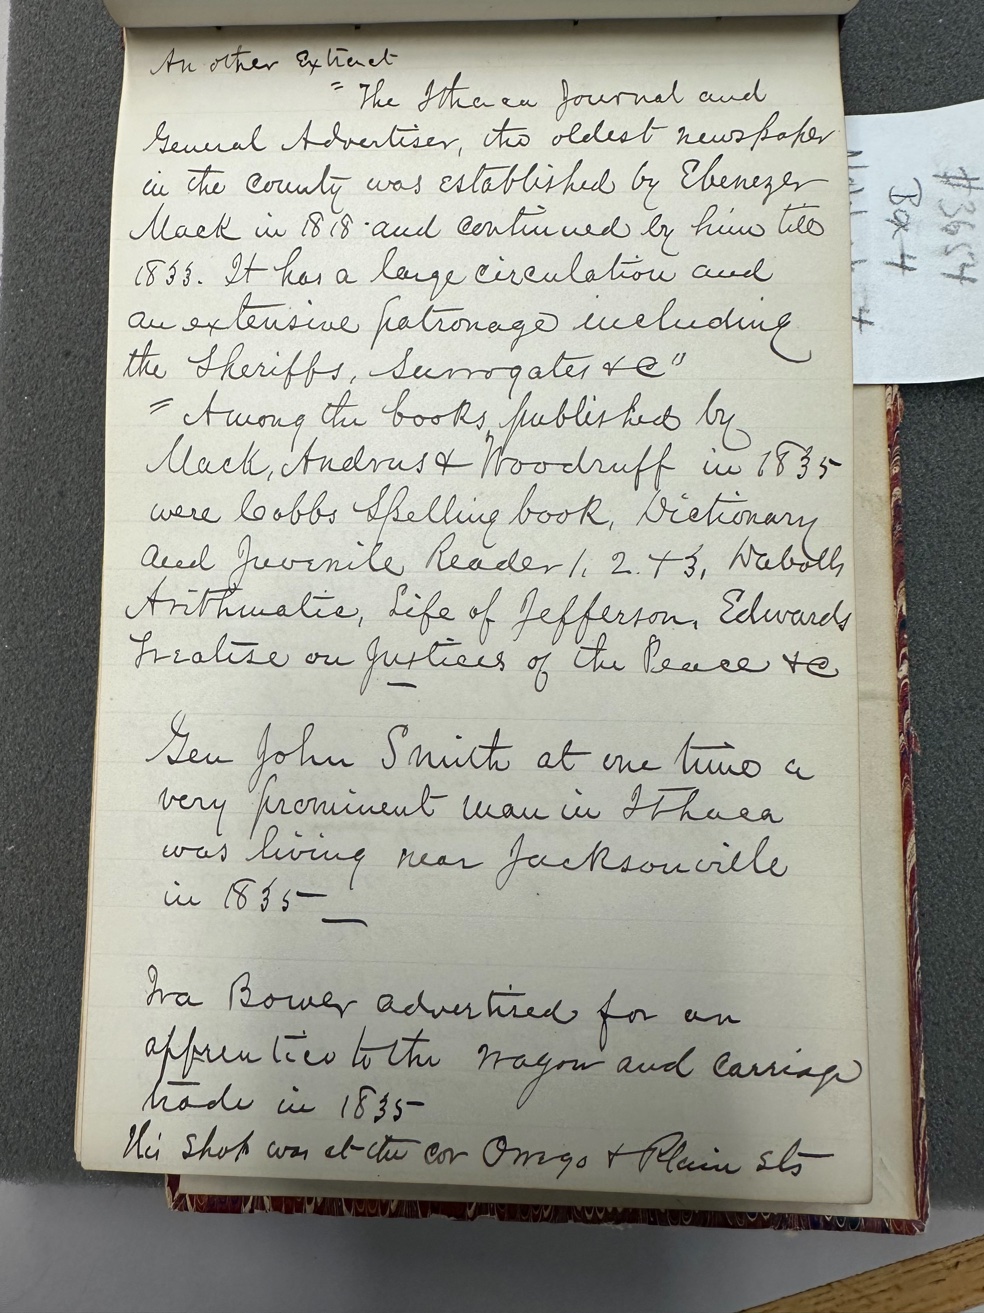 An other Extract
" The Ithaca Journal and
General Advertiser, the oldest newspaper
in the county was established by Ebenezer
Mack in 1818 and continued by him till
1833. It has a large circulation and
an extensive patronage including
the Sheriffs, Surrogates &c"
" Among the books published by
Mack, Andrus & Woodruff in 1835
were Cobbs Spelling book, Dictionary
and Juvenile Reader 1, 2. + 3, Dabolls
Arithmatic, Life of Jefferson, Edwards
Treatise on Justices of the Peace &c
Gen John Smith at one time a
very prominent man in Ithaca
was living near Jacksonville
in 1835 —
Ira Bower advertised for an
apprentice to the wagon and carriage
trade in 1835
His Shop was at the cor Owego + Plain sts
#3654
Box 4